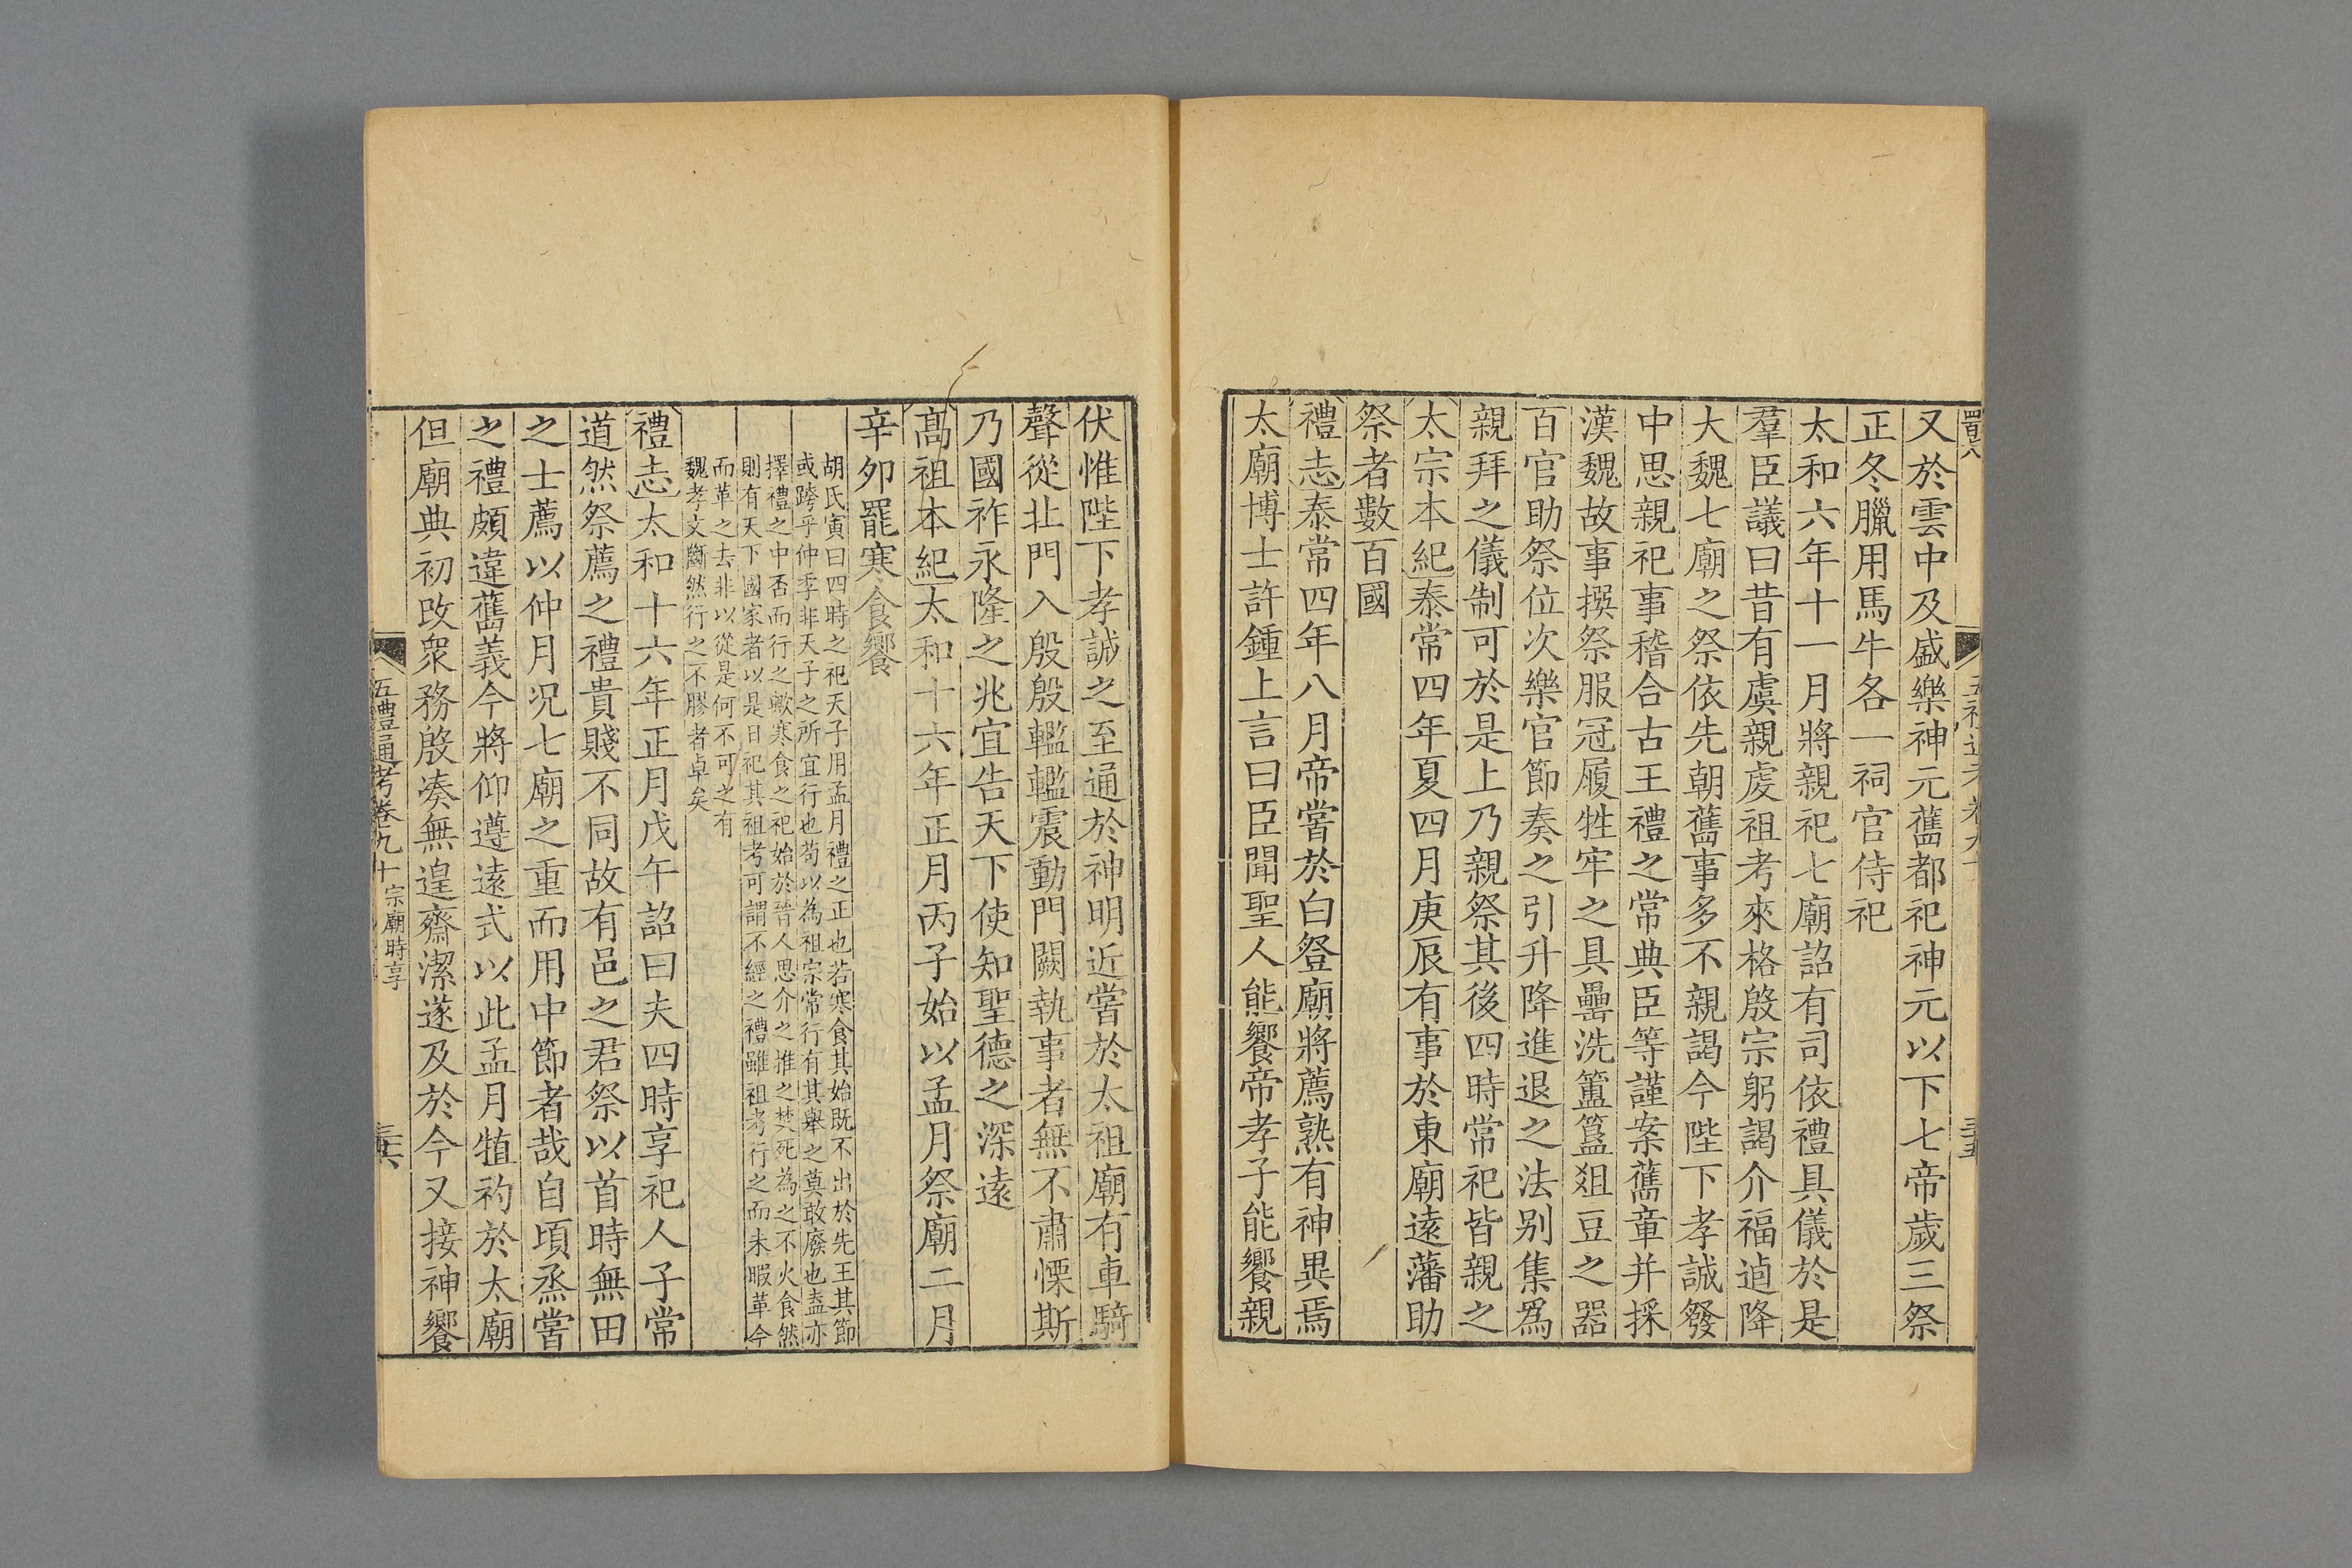 又於雲中及盛樂神元舊都祀神元以下七帝歲三祭
正冬臘用馬牛各一祠官侍祀
太和六年十一月將親祀七廟詔有司依禮具儀於是
羣臣議曰昔有虞親虔祖考來格殷宗躬謁介福逌降
大魏七廟之祭依先朝舊事多不親謁今陛下孝誠發
中思親祀事稽合古王禮之常典臣等謹案舊章并採
漢魏故事撰祭服冠履牲牢之具罍洗簠簋俎豆之器
百官助祭位次樂官節奏之引升降進退之法别集爲
親拜之儀制可於是上乃親祭其後四時常祀皆親之
太宗本紀泰常四年夏四月庚辰有事於東廟遠藩助
祭者數百國
禮志泰常四年八月帝嘗於白登廟將薦熟有神異焉
太廟博士許鍾上言曰臣聞聖人能饗帝孝子能饗親
伏惟陛下孝誠之至通於神明近嘗於太祖廟有車騎
聲從北門入殷殷轞轞震動門闕執事者無不肅慄斯
乃國祚永隆之兆宜告天下使知聖德之深遠
高祖本紀太和十六年正月丙子始以孟月祭廟二月
辛夘罷寒食饗
胡氏寅曰四時之祀天子用孟月禮之正也若寒食其始既不出於先王其節
或跨乎仲季非天子之所宜行也苟以為祖宗常行有其舉之莫敢廢也盍亦
擇禮之中否而行之歟寒食之祀始於晉人思介之推之焚死為之不火食然
則有天下國家者以是日祀其祖考可謂不經之禮雖祖考行之而未暇革今
而革之去非以從是何不可之有
魏孝文斷然行之不膠者卓矣
禮志太和十六年正月戊午詔曰夫四時享祀人子常
道然祭薦之禮貴賤不同故有邑之君祭以首時無田
之士薦以仲月况七廟之重而用中節者哉自頃烝嘗
之禮頗違舊義今將仰遵遠式以此孟月犆礿於太廟
但廟典初改衆務殷凑無遑齋潔遂及於今又接神饗
五禮通考卷九十 宗廟時享 三六